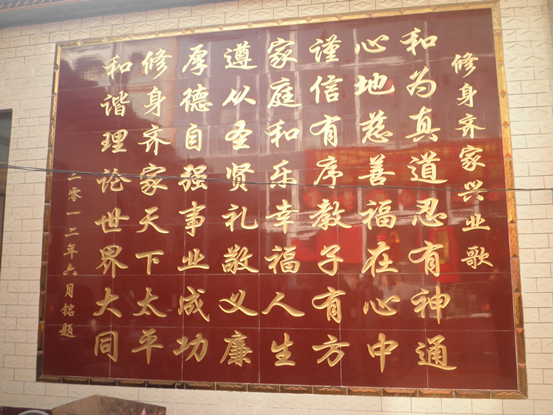 修身齐家兴业歌
和为真道忍有神通
心地慈善福在心中
谨信有序教子有方
家庭和乐幸福人生
遵从圣贤礼敬义廉
厚德自强事业成功
修身齐家天下太平
和谐理论世界大同
二零一二年六月铭题